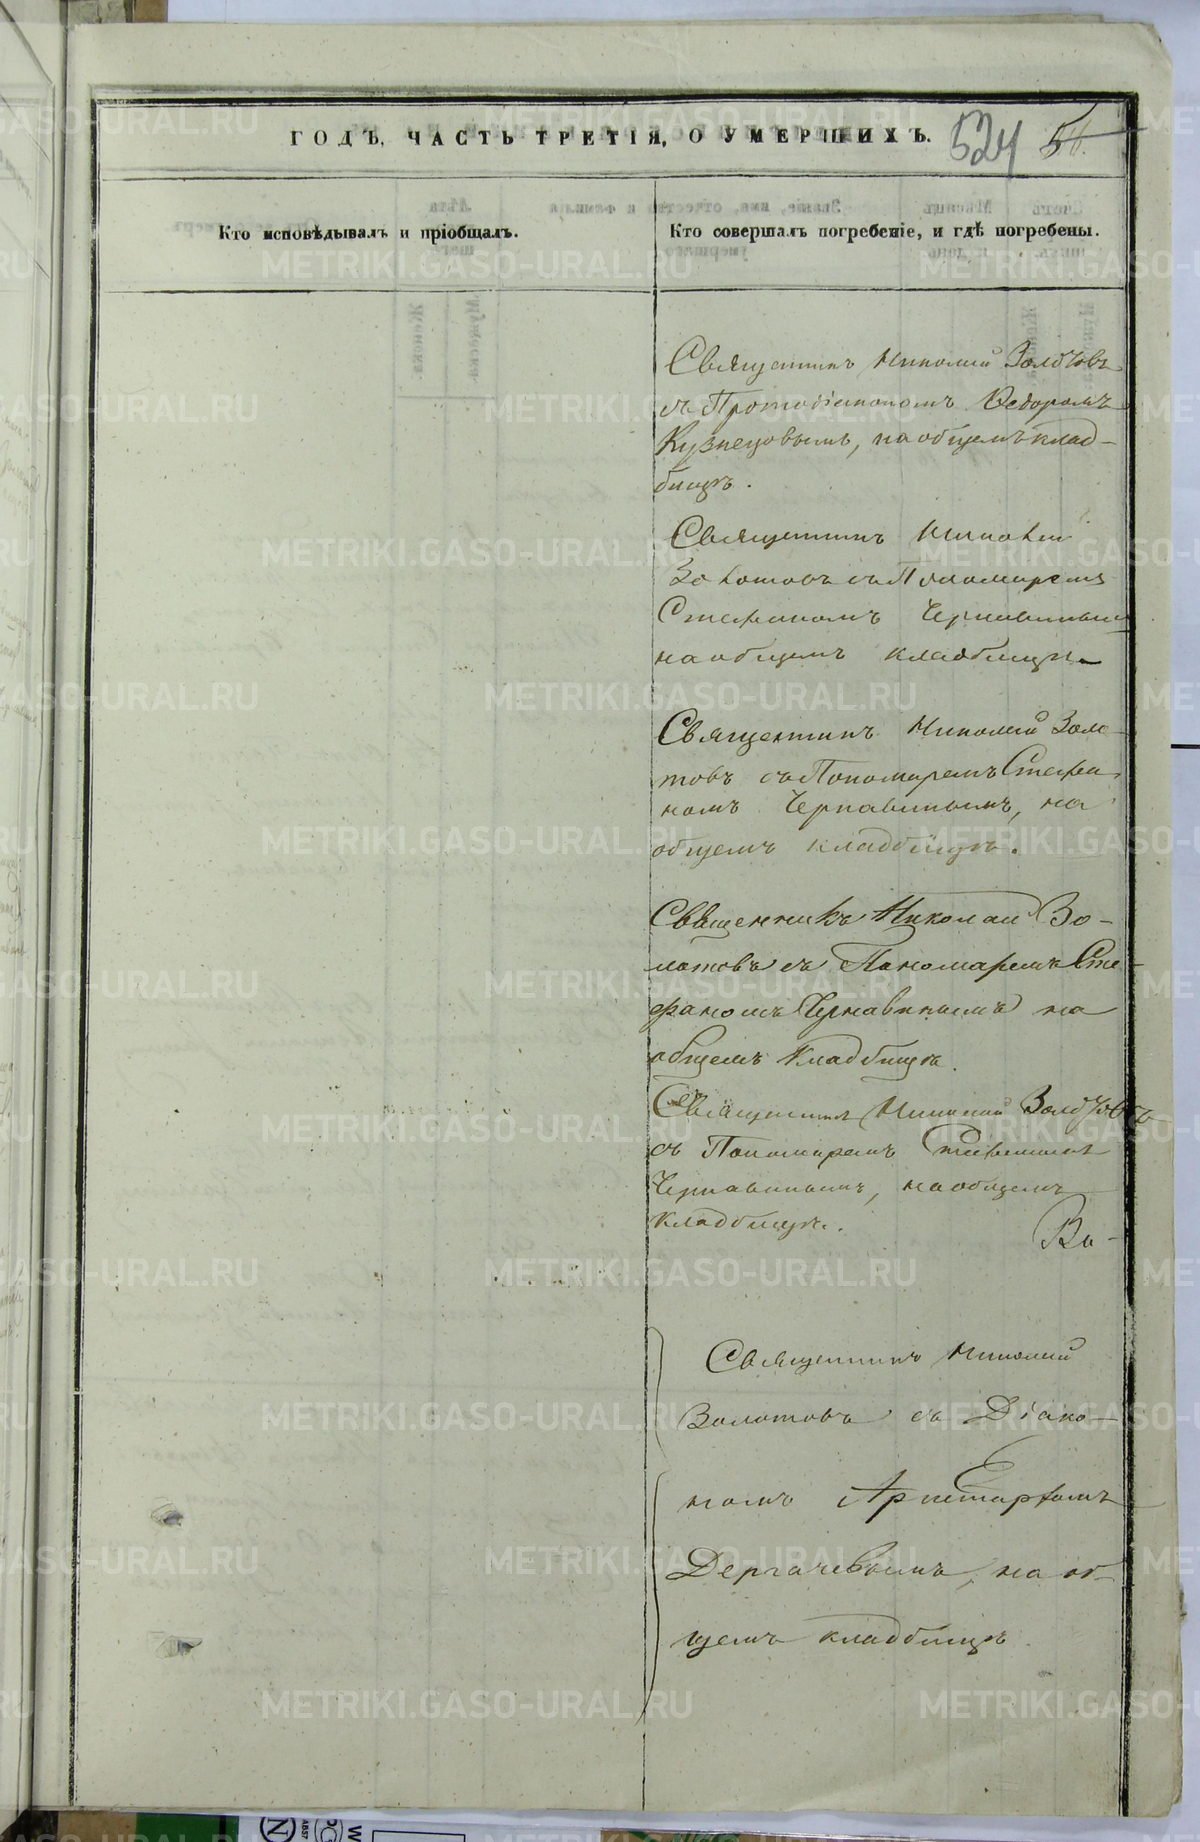 ГОДЪ, ЧАСТЬ ТРЕТІЯ, О УМЕРШИХЪ.
524
Кто исповѣдывалъ и пріобщалъ.
Кто совершалъ погребеніе, и гдѣ погребены.
Священникъ Николай Золотовъ
съ Протодіакономъ Ѳедоромъ
Кузнецовымъ, на общемъ клад-
бищѣ.
Священникъ Николай
Золотовъ съ Пономаремъ
Стефаномъ Чернавинымъ
на общемъ кладбищѣ.
Священникъ Николай Золо-
товъ съ Пономаремъ Стефа-
номъ Чернавинымъ, на
общемъ кладбищѣ.
Священникъ Николай Зо-
лотовъ съ Пономаремъ Сте-
фаномъ Чернавинымъ на
общемъ кладбищѣ.
Священникъ Николай Золотовъ
съ Пономаремъ Стефаномъ
Чернавинымъ, на общемъ
кладбищѣ.
Во-
Священникъ Николай
Золотовъ съ Діако-
номъ Аристархомъ
Дергачевымъ, на об-
щемъ кладбищѣ.
METRIKI.GASO-URAL.RU